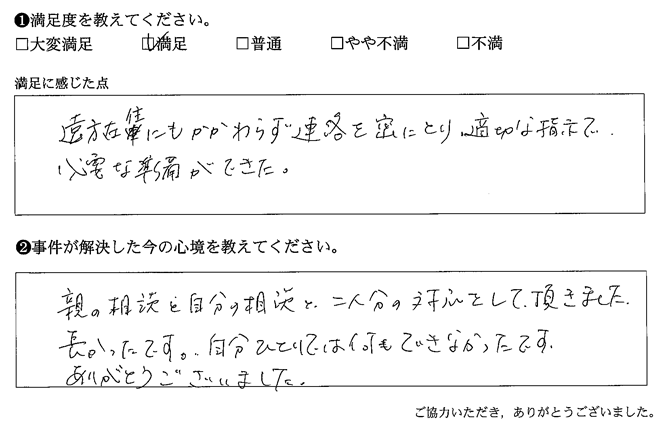 ❶満足度を教えてください。
□大変満足 ☑満足 □普通 □やや不満 □不満
満足に感じた点
遠方在住にもかかわらず連絡を密にとり、適切な指示で、
必要な準備ができた。
❷事件が解決した今の心境を教えてください。
親の相談と自分の相談と、二人分の対応をして頂きました。
長かったです。自分ひとりでは何もできなかったです。
ありがとうございました。
ご協力いただき，ありがとうございました。